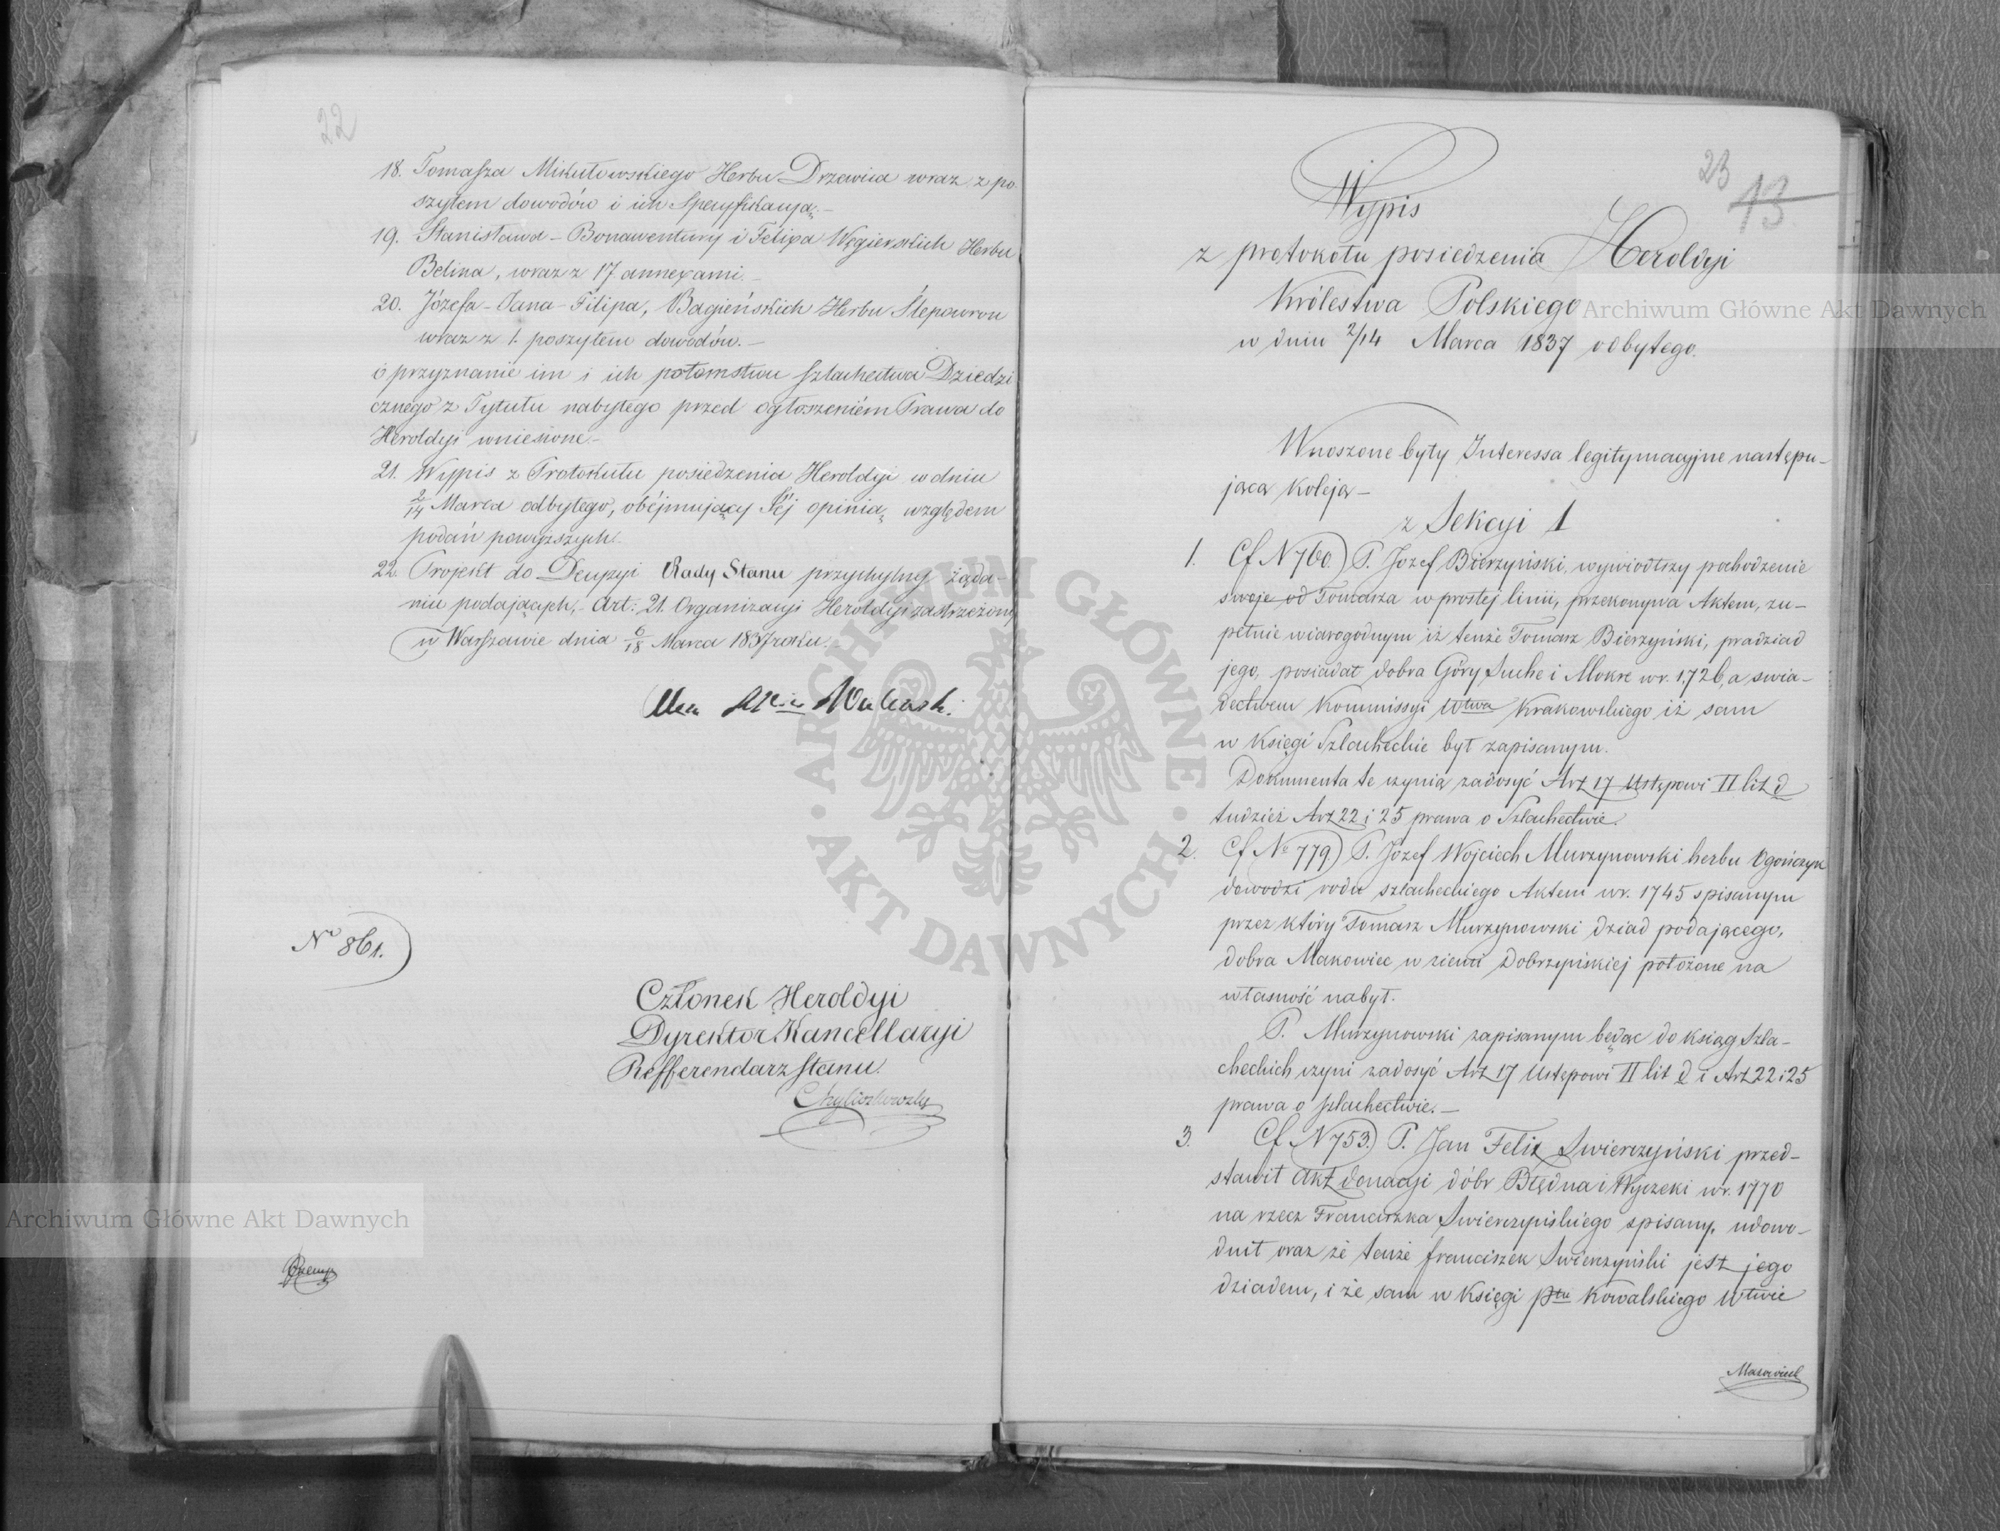 22
18. Tomasza Mikułowskiego Herbu Drzewica wraz z po
szytem dowodów i ich Specyfikacyą.—
19. Stanisława – Bonawentury i Felixa Węgierskich Herbu
Belina, wraz z 17 annexami.—
20. Józefa – Jana – Filipa, Bagieńskich Herbu Ślepowron
wraz z 1. poszytem dowodów.—
o przyznanie im i ich potomstwu szlachectwa Dziedzi
cznego z Tytułu nabytego przed ogłoszeniem Prawa do
Heroldyi wniesione.—
21. Wypis z Protokułu posiedzenia Heroldyi w dniu
2/14 Marca odbytego, obéjmujący Jéj opinią względem
podań powyższych.
22. Projekt do Decyzyi Rady Stanu przychylnéj żąda-
niu podających,– Art: 21. Organizacyi Heroldyi zastrzeżony
w Warszawie dnia 6/18 Marca 1837 roku.—
No 861.
Członek Heroldyi
Dyrektor Kancellaryi
Refferendarz Stanu.
23
13.
Wypis
z protokołu posiedzenia Heroldyi
Królestwa Polskiego
w dniu 2/14 Marca 1837 odbytego.
Wnoszone były Interessa legitymacyjne następu-
jącą koleją—
z Sekcyi 1
1. Cf N 760.) P. Józef Bierzyński, wywiódłszy pochodzenie
swoje od Tomasza w prostej linii, przekonywa Aktem, zu-
pełnie wiarogodnym iż tenże Tomasz Bierzyński, pradziad
jego, posiadał dobra Góry Suche i Mokre w r. 1726, a świa-
dectwem Kommissyi Wtwa Krakowskiego iż sam
w Księgi Szlacheckie był zapisanym.
Dokumenta te czynią zadosyć Art 17 Ustępowi II lit d
tudzież Art 22 i 25 prawa o Szlachectwie.
2. Cf No 779.) P. Józef Wojciech Murzynowski herbu Ogończyk
dowodzi rodu szlacheckiego Aktem w r. 1745 spisanym
przez który Tomasz Murzynowski dziad podającego,
dobra Makowiec w ziemi Dobrzyńskiej położone na
własność nabył.
P. Murzynowski zapisanym będąc do ksiąg Szla-
checkich czyni zadosyć Art 17 Ustępowi II lit d i Art 22 i 25
prawa o szlachectwie.—
3. Cf N 753.) P. Jan Felix Swierczyński przed-
stawił Akt donacyi dóbr Błędna i Wyczeki w r. 1770
na rzecz Franciszka Swierczyńskiego spisany, udowo-
dnił oraz że tenże Franciszek Swierczyński jest jego
dziadem, i że sam w Księgi ptu Kowalskiego Wtwie
Mazowiec
Archiwum Główne Akt Dawnych
Archiwum Główne Akt Dawnych
ARCHIWUM GŁÓWNE · AKT DAWNYCH ·